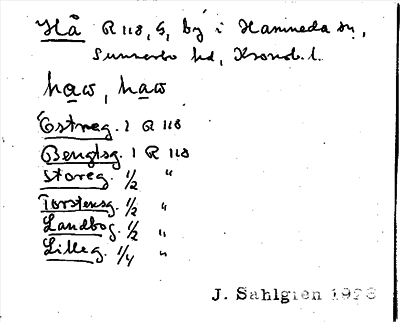 Hå R 118, 6, by i Hamneda sn,
Sunnerbo hd, Kronob. l.
haw, haw
Östreg. 1 R 118
Bengtsg. 1 R 118
Storeg. 1/2 "
Torstensg. 1/2 "
Landbog. 1/2 "
Lilleg. 1/4 "
J. Sahlgren 1928